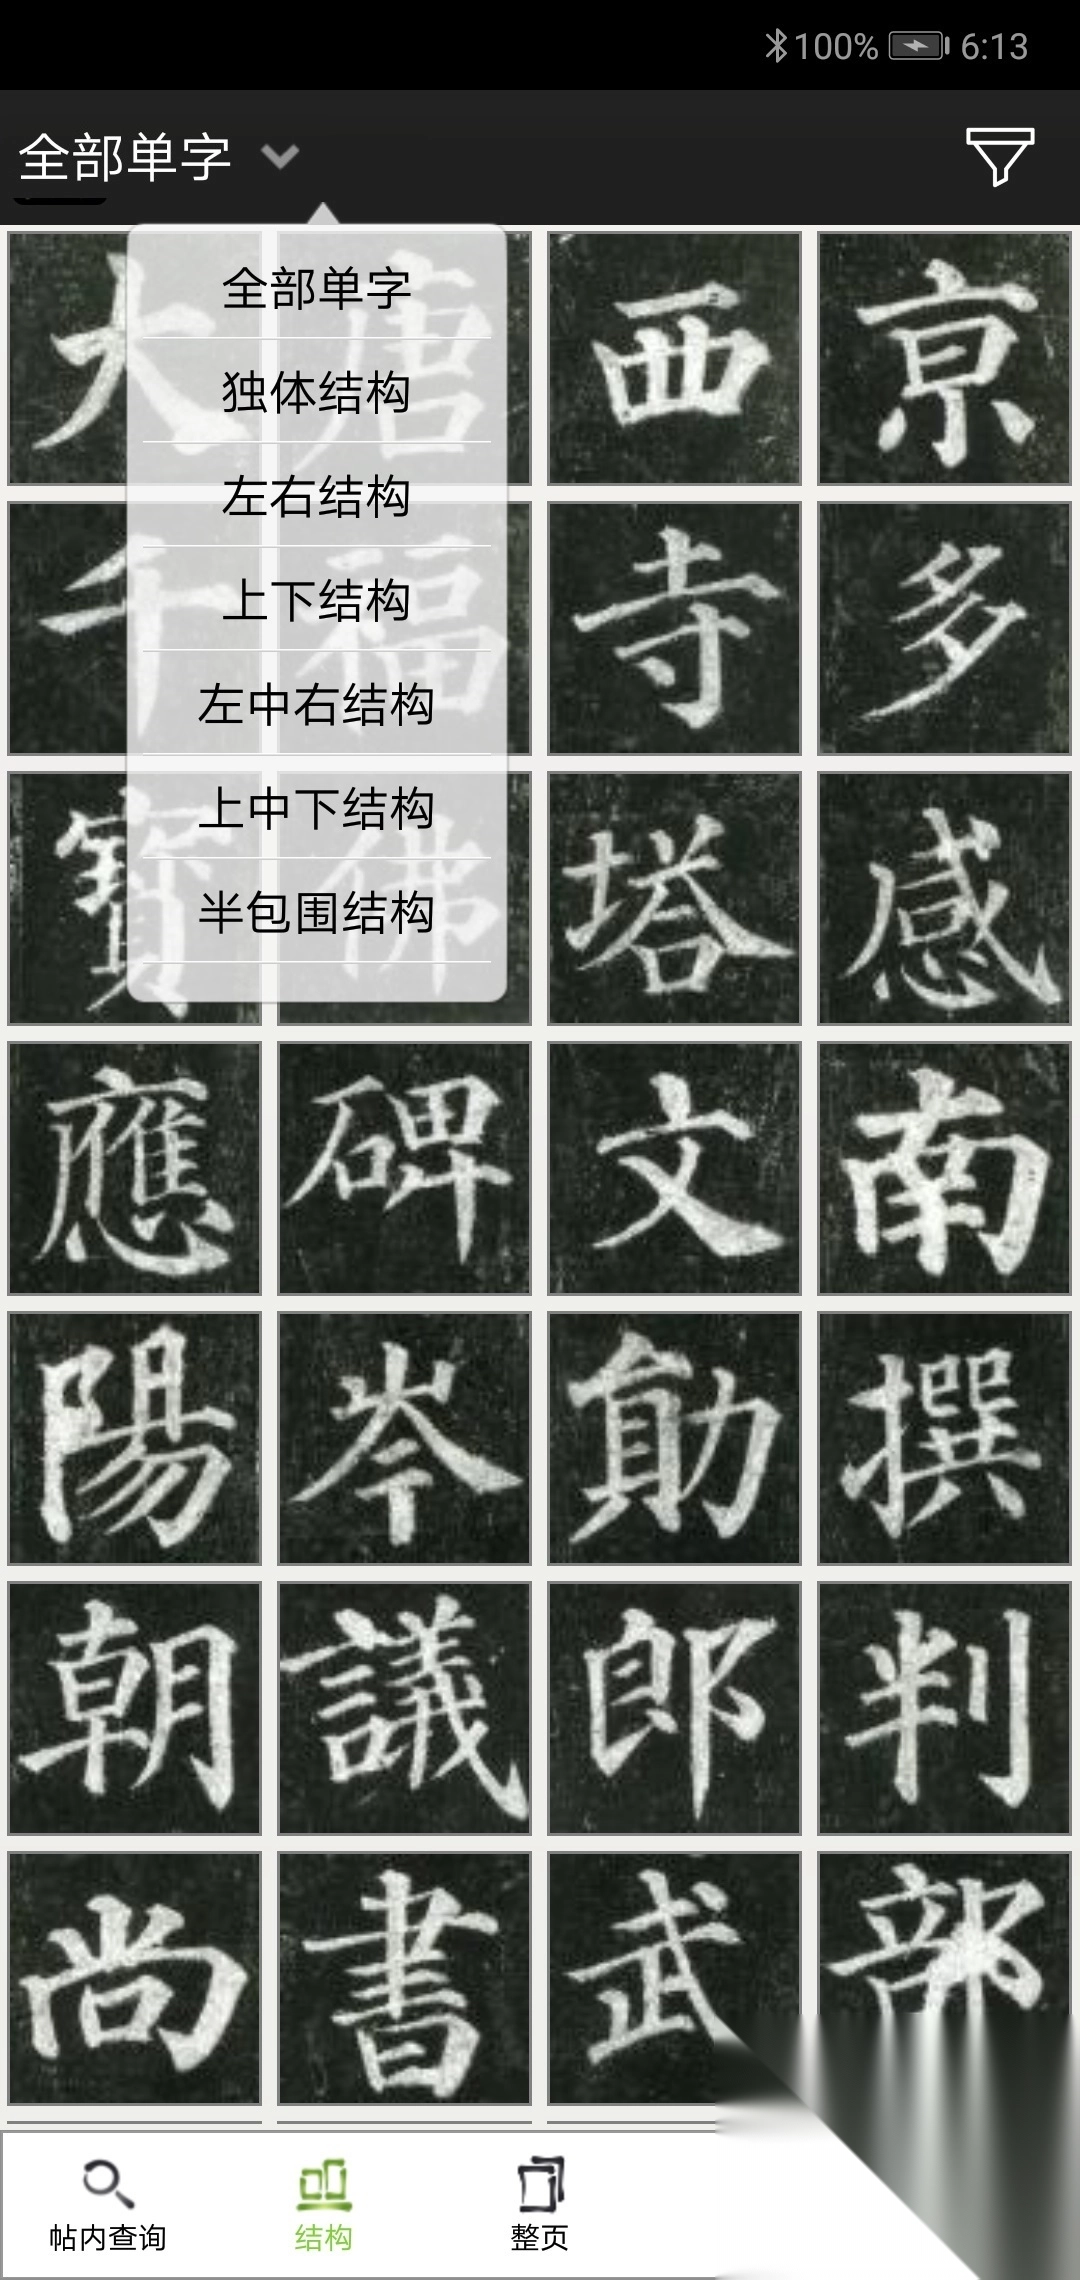 100% 6:13
全部单字
全部单字
独体结构
左右结构
上下结构
左中右结构
上中下结构
半包围结构
大唐西京
千福寺多
寳佛塔感
應碑文南
陽岑勛撰
朝議郎判
尚書武部
帖内查询 结构 整页